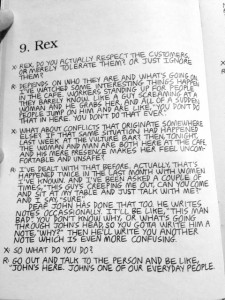 9. Rex
X: REX, DO YOU ACTUALLY RESPECT THE CUSTOMERS,
OR MERELY TOLERATE THEM? OR JUST IGNORE
THEM?
R: DEPENDS ON WHO THEY ARE AND WHAT'S GOING ON.
I'VE WATCHED SOME INTERESTING THINGS HAPPEN
IN THE CAFE. WORKERS STANDING UP FOR PEOPLE
THEY BARELY KNOW. LIKE A GUY SCREAMING AT A
WOMAN AND HE GRABS HER, AND ALL OF A SUDDEN
PEOPLE JUMP ON HIM AND ARE LIKE, "YOU DON'T DO
THAT IN HERE. YOU DON'T DO THAT EVER."
X: WHAT ABOUT CONFLICTS THAT ORIGINATE SOMEWHERE
ELSE? IF THAT SAME SITUATION HAD HAPPENED
LAST WEEK AT THE VULTURE BAR? THEN TONIGHT,
THE WOMAN AND MAN ARE BOTH HERE AT THE CAFE
AND HIS MERE PRESENCE MAKES HER FEEL UNCOM-
FORTABLE AND UNSAFE?
R: I'VE DEALT WITH THAT BEFORE. ACTUALLY, THAT'S
HAPPENED TWICE IN THE LAST MONTH WITH WOMEN
I'VE KNOWN. AND I'VE BEEN ASKED A COUPLE OF
TIMES, "THIS GUY'S CREEPING ME OUT, CAN YOU COME
AND SIT AT MY TABLE AND JUST TALK WITH ME?"
AND I SAY, "SURE."
DEAF JOHN HAS DONE THAT TOO. HE WRITES
NOTES OCCASSIONALLY. IT'LL BE LIKE, "THIS MAN
BAD." YOU DON'T KNOW WHY, OR WHAT'S GOING
THROUGH JOHN'S HEAD, SO YOU GOTTA WRITE HIM A
NOTE, "WHY?" THEN HE'LL WRITE YOU ANOTHER
NOTE WHICH IS EVEN MORE CONFUSING.
X: SO WHAT DO YOU DO?
R: GO OUT AND TALK TO THE PERSON AND BE LIKE,
"JOHN'S HERE. JOHN'S ONE OF OUR EVERYDAY PEOPLE.